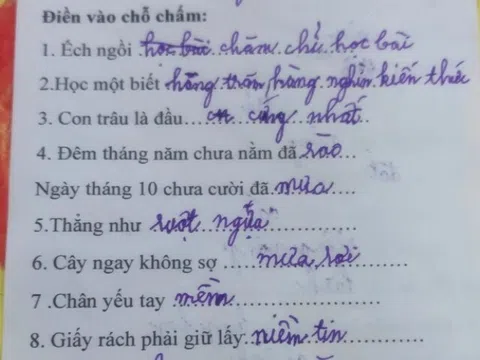 Điền vào chỗ chấm:
1. Ếch ngồi học bài chăm chỉ học bài
2.Học một biết hàng trăm hàng nghìn kiến thức
3. Con trâu là đầu... cứng nhất..
4. Đêm tháng năm chưa nằm đã rào...
Ngày tháng 10 chưa cười đã.mưa....
5.Thẳng như ruột ngựa...............
6. Cây ngay không sợ ......mưa rơi..........
7 .Chân yếu tay mềm..................
8. Giấy rách phải giữ lấy..niềm tin...........